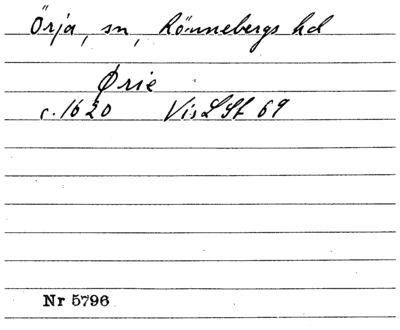 Örja, sn, Rönnebergs hd
Ørie
c. 1620 Vis LSt 69
Nr 5796